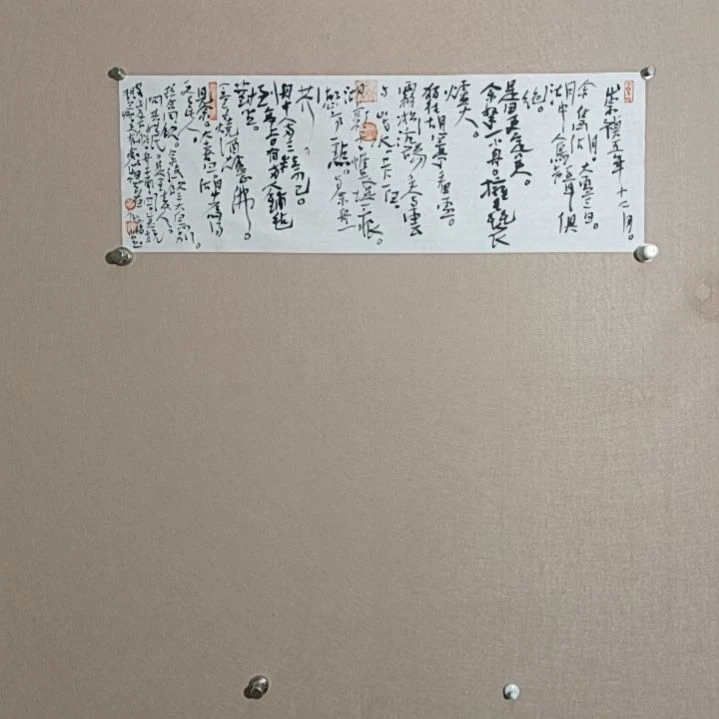 崇禎五年十二月。
余住西湖。大雪三日。
湖中人鳥聲俱
絕。
是日更定矣。
余拏一小舟。擁毳衣
爐火。
獨往湖心亭看雪。
霧凇沆碭天與雲
與山與水上下一白。
湖上影子惟長堤一痕。
湖心亭一點。與余舟一
芥。
舟中人兩三粒而已。
到亭上有兩人鋪氈
對坐。
一童子燒酒爐正沸。
見余大喜曰湖中焉得
更有此人。
拉余同飲。余強飲三大白而別。
問其姓氏。是金陵人。